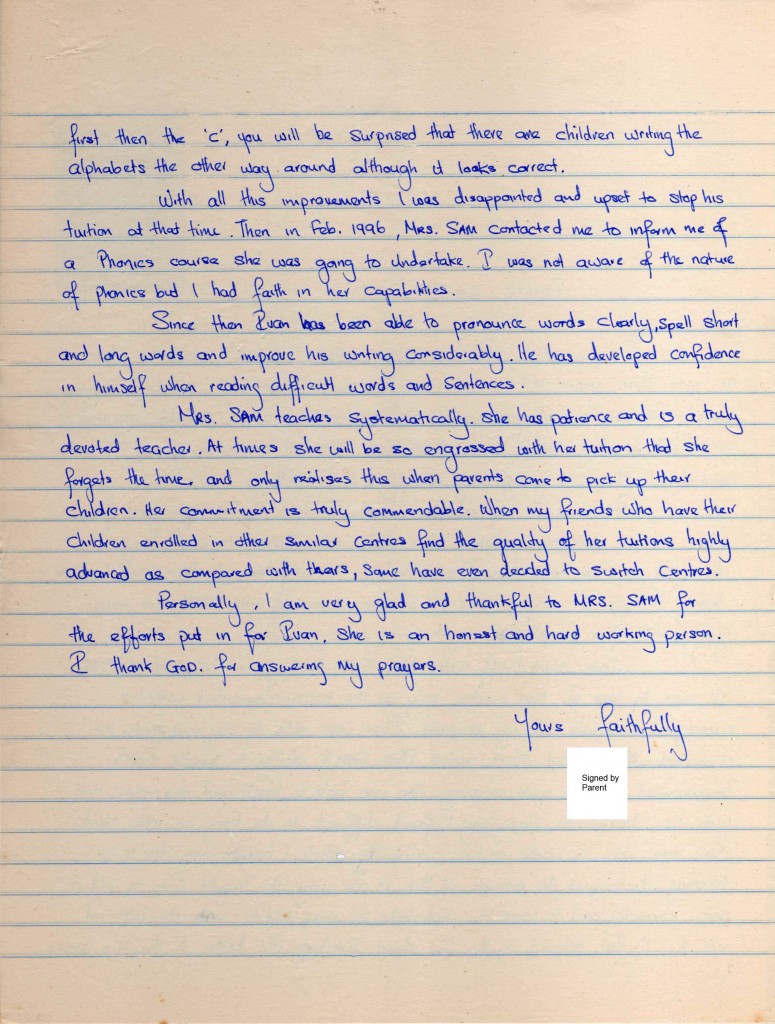 first then the 'c', you will be surprised that there are children writing the
alphabets the other way around although it looks correct.
With all this improvements I was disappointed and upset to stop his
tuition at that time. Then in Feb. 1996, MRS. SAM contacted me to inform me of
a Phonics course she was going to undertake. I was not aware of the nature
of phonics but I had faith in her capabilities.
Since then Ivan has been able to pronounce words clearly, spell short
and long words and improve his writing considerably. He has developed confidence
in himself when reading difficult words and sentences.
MRS. SAM teaches systematically. She has patience and is a truly
devoted teacher. At times she will be so engrossed with her tuition that she
forgets the time, and only realises this when parents come to pick up their
children. Her commitment is truly commendable. When my friends who have their
children enrolled in other similar centres find the quality of her tuitions highly
advanced as compared with theirs, some have even decided to switch centres.
Personally, I am very glad and thankful to MRS. SAM for
the efforts put in for Ivan. She is an honest and hard working person.
I thank GOD. for answering my prayers.
Yours faithfully
Signed by
Parent